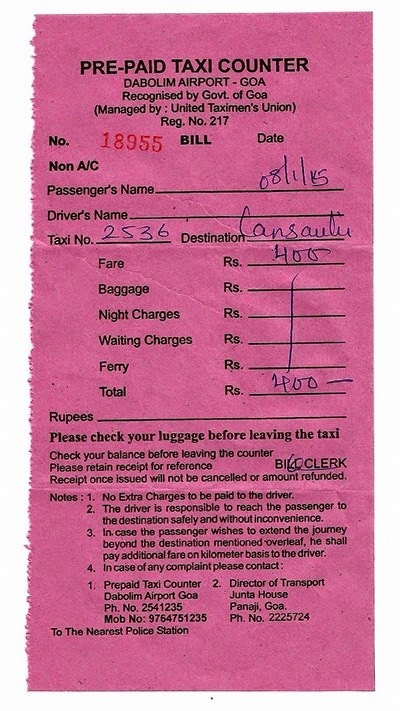 PRE-PAID TAXI COUNTER
DABOLIM AIRPORT - GOA
Recognised by Govt. of Goa
(Managed by : United Taximen's Union)
Reg. No. 217
No. 18955 BILL Date
Non A/C
08/1/15
Passenger's Name
Driver's Name
Taxi No. 2536 Destination Cansaulu
Fare Rs. 400
Baggage Rs.
Night Charges Rs.
Waiting Charges Rs.
Ferry Rs.
Total Rs. 400 —
Rupees
Please check your luggage before leaving the taxi
Check your balance before leaving the counter
Please retain receipt for reference BILL CLERK
Receipt once issued will not be cancelled or amount refunded.
Notes : 1. No Extra Charges to be paid to the driver.
2. The driver is responsible to reach the passenger to
the destination safely and without inconvenience.
3. In case the passenger wishes to extend the journey
beyond the destination mentioned overleaf, he shall
pay additional fare on kilometer basis to the driver.
4. In case of any complaint please contact :
1. Prepaid Taxi Counter 2. Director of Transport
Dabolim Airport Goa Junta House
Ph. No. 2541235 Panaji, Goa.
Mob No: 9764751235 Ph. No. 2225724
To The Nearest Police Station